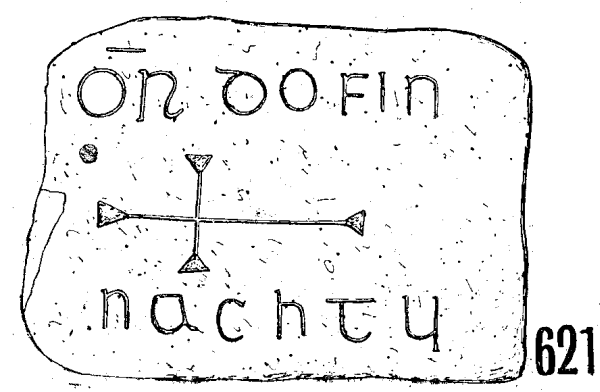 ōn do finn
nachtu
621